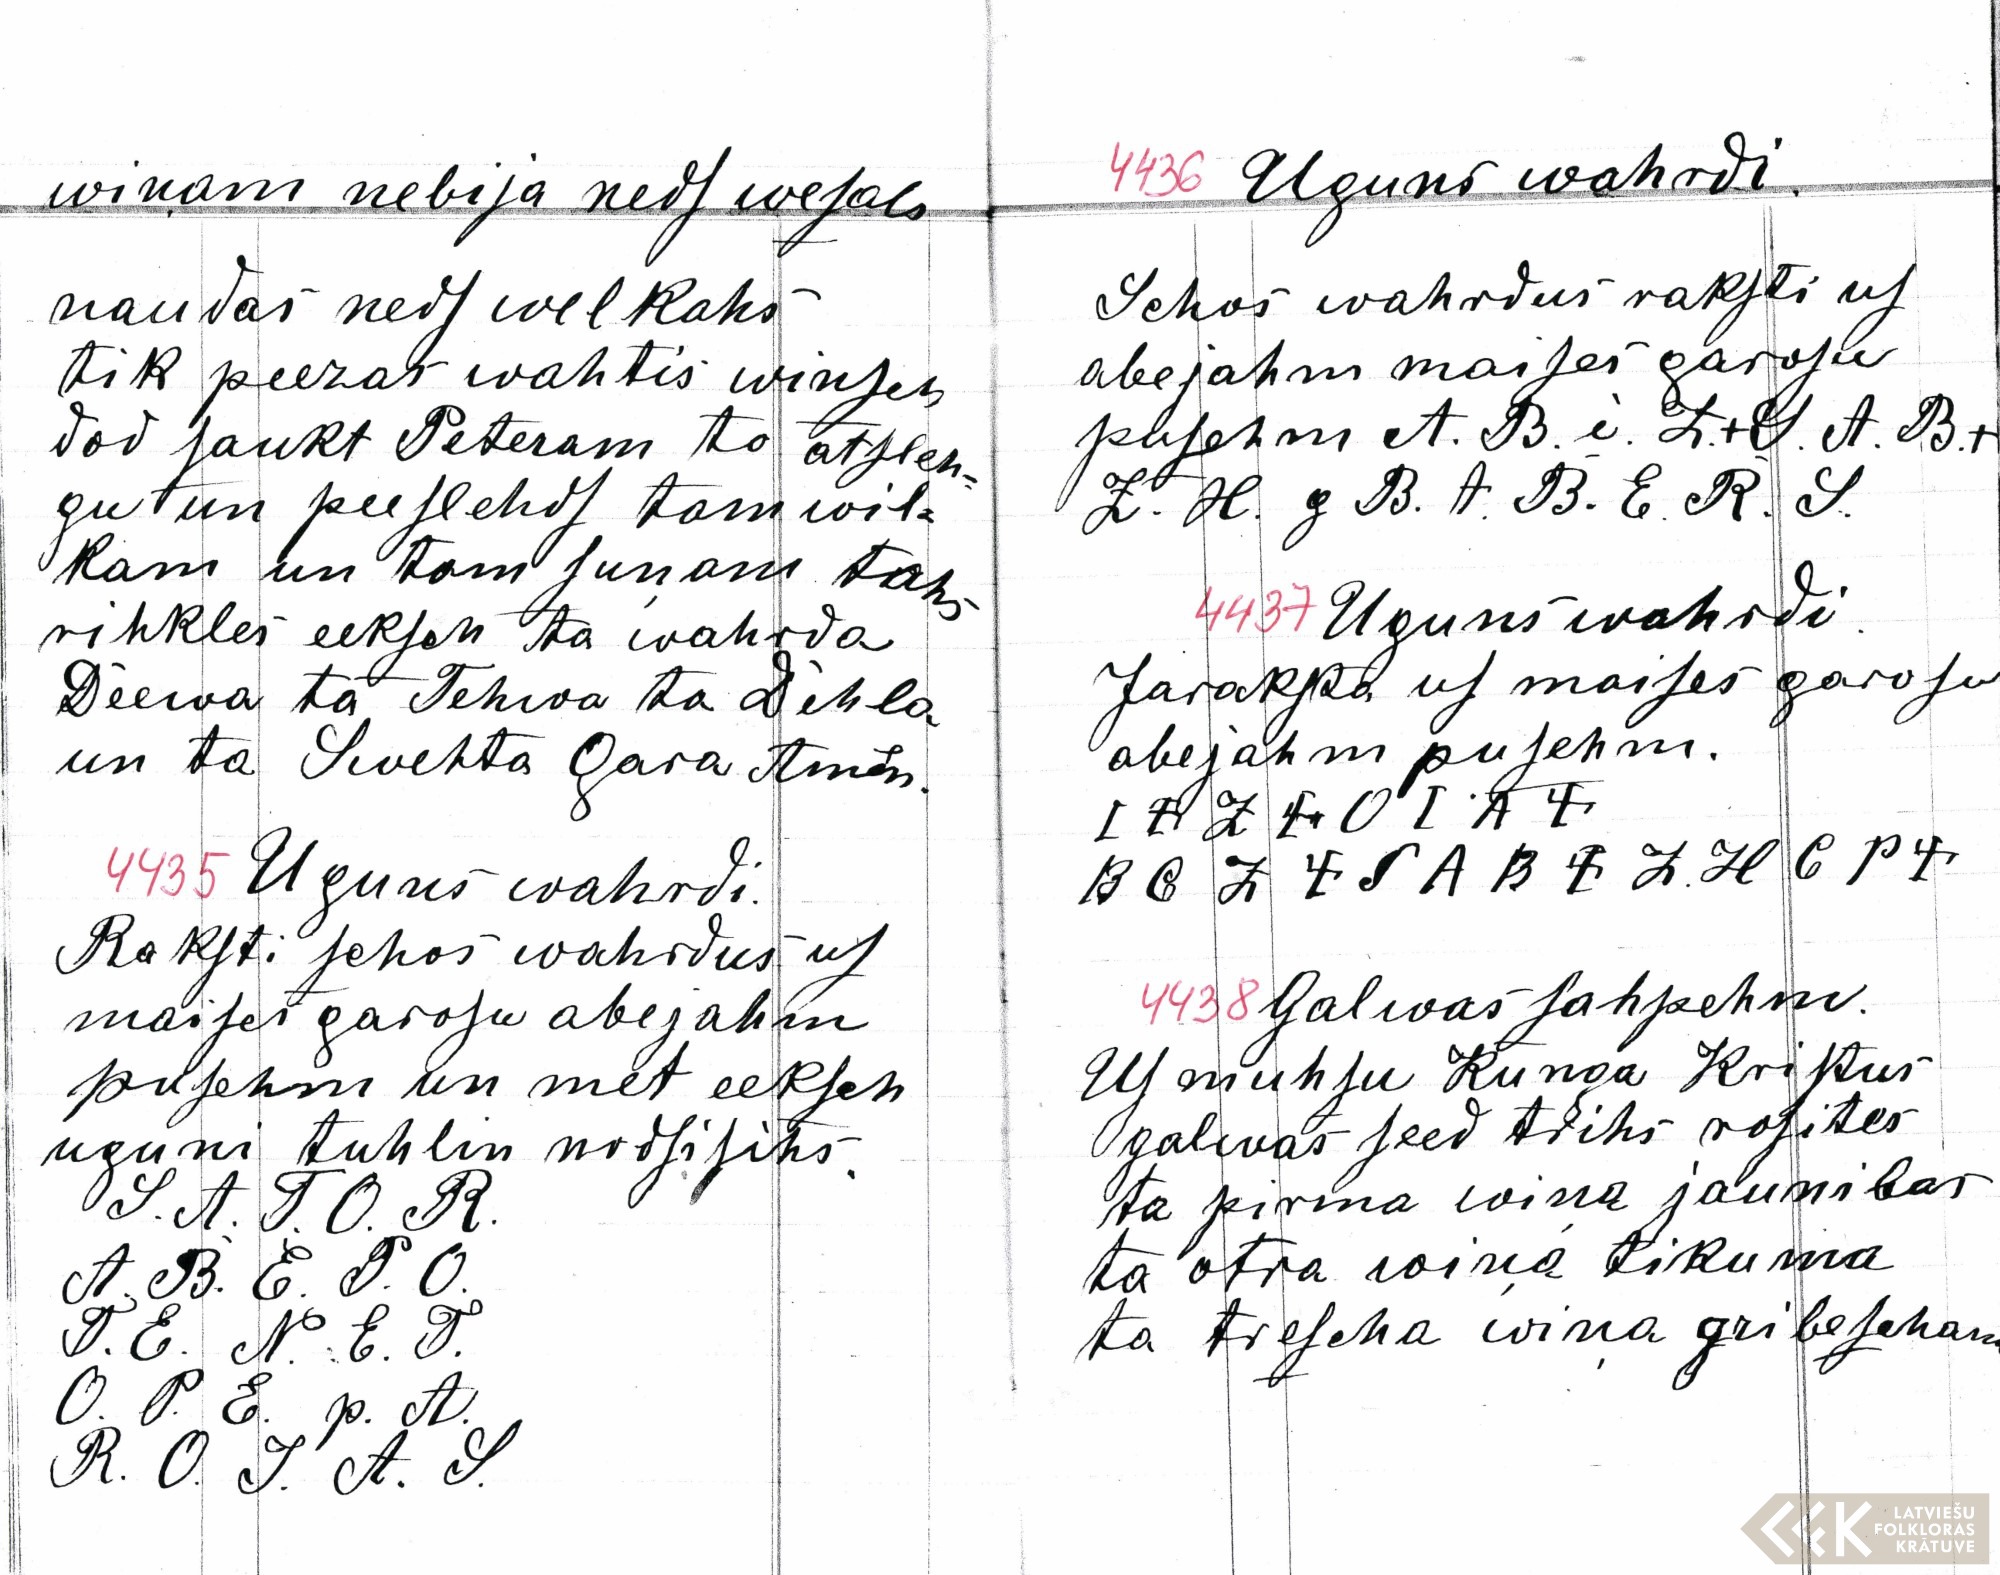 wiņam nebija nedſ weſals
naudas nedſ welkahs
tik peezas wahtis winſch
dod ſaukt Peteram to atſleh-
gu un peeſlehdſ tam wil-
kam un tam ſuņam tahs
rihkles eekſch ta wahrda
Deewa ta Tehwa ta Dehla
un ta Swehta Gara Amen.
4435 Uguns wahrdi.
Rakſti ſchos wahrdus uſ
maiſes garoſu abejahm
puſehm un met eekſch
uguni tuhlin nodſiſihs.
S. A. T. O. R.
A. B. E. P. O.
T. E. N. E. T.
O. P. E. p. A.
R. O. T. A. S.
4436 Uguns wahrdi.
Schos wahrdus rakſti uſ
abejahm maiſes garoſu
puſehm A. B. i. Z.+S. A. B.+
Z. H. g B. A. B. E. R. S.
4437 Uguns wahrdi.
Jarakſta uſ maiſes garoſu
abejahm puſehm.
I ‡ Z ‡ O I A ‡
B C Z ‡ S A B ‡ Z. H C P ‡
4438 Galwas ſahpehm.
Uſ muhſu Kunga Kriſtus
galwas ſeed trihs roſites
ta pirma wiņa jaunibas
ta otra wiņa tikuma
ta treſcha wiņa gribeſchan
LATVIEŠU
FOLKLORAS
KRĀTUVE